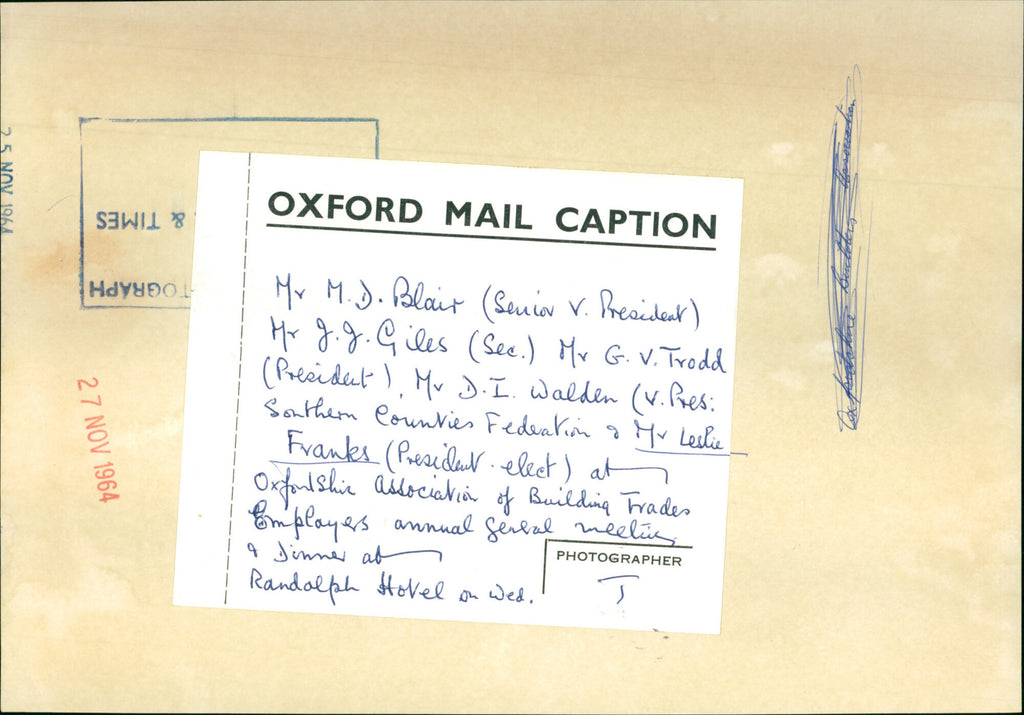 OXFORD MAIL CAPTION
Mr M.D. Blair (Senior V. President)
Mr J.J. Giles (Sec.) Mr G.V. Trodd
(President), Mr D.I. Walden (V. Pres:
Southern Counties Federation & Mr Leslie
Franks (President-elect) at
Oxfordshire Association of Building Trades
Employers annual general meeting
& Dinner at
Randolph Hotel on Wed.
PHOTOGRAPHER
J
& TIMES
TOGRAPH
25 NOV 1964
27 NOV 1964
Oxfordshire Builders Association